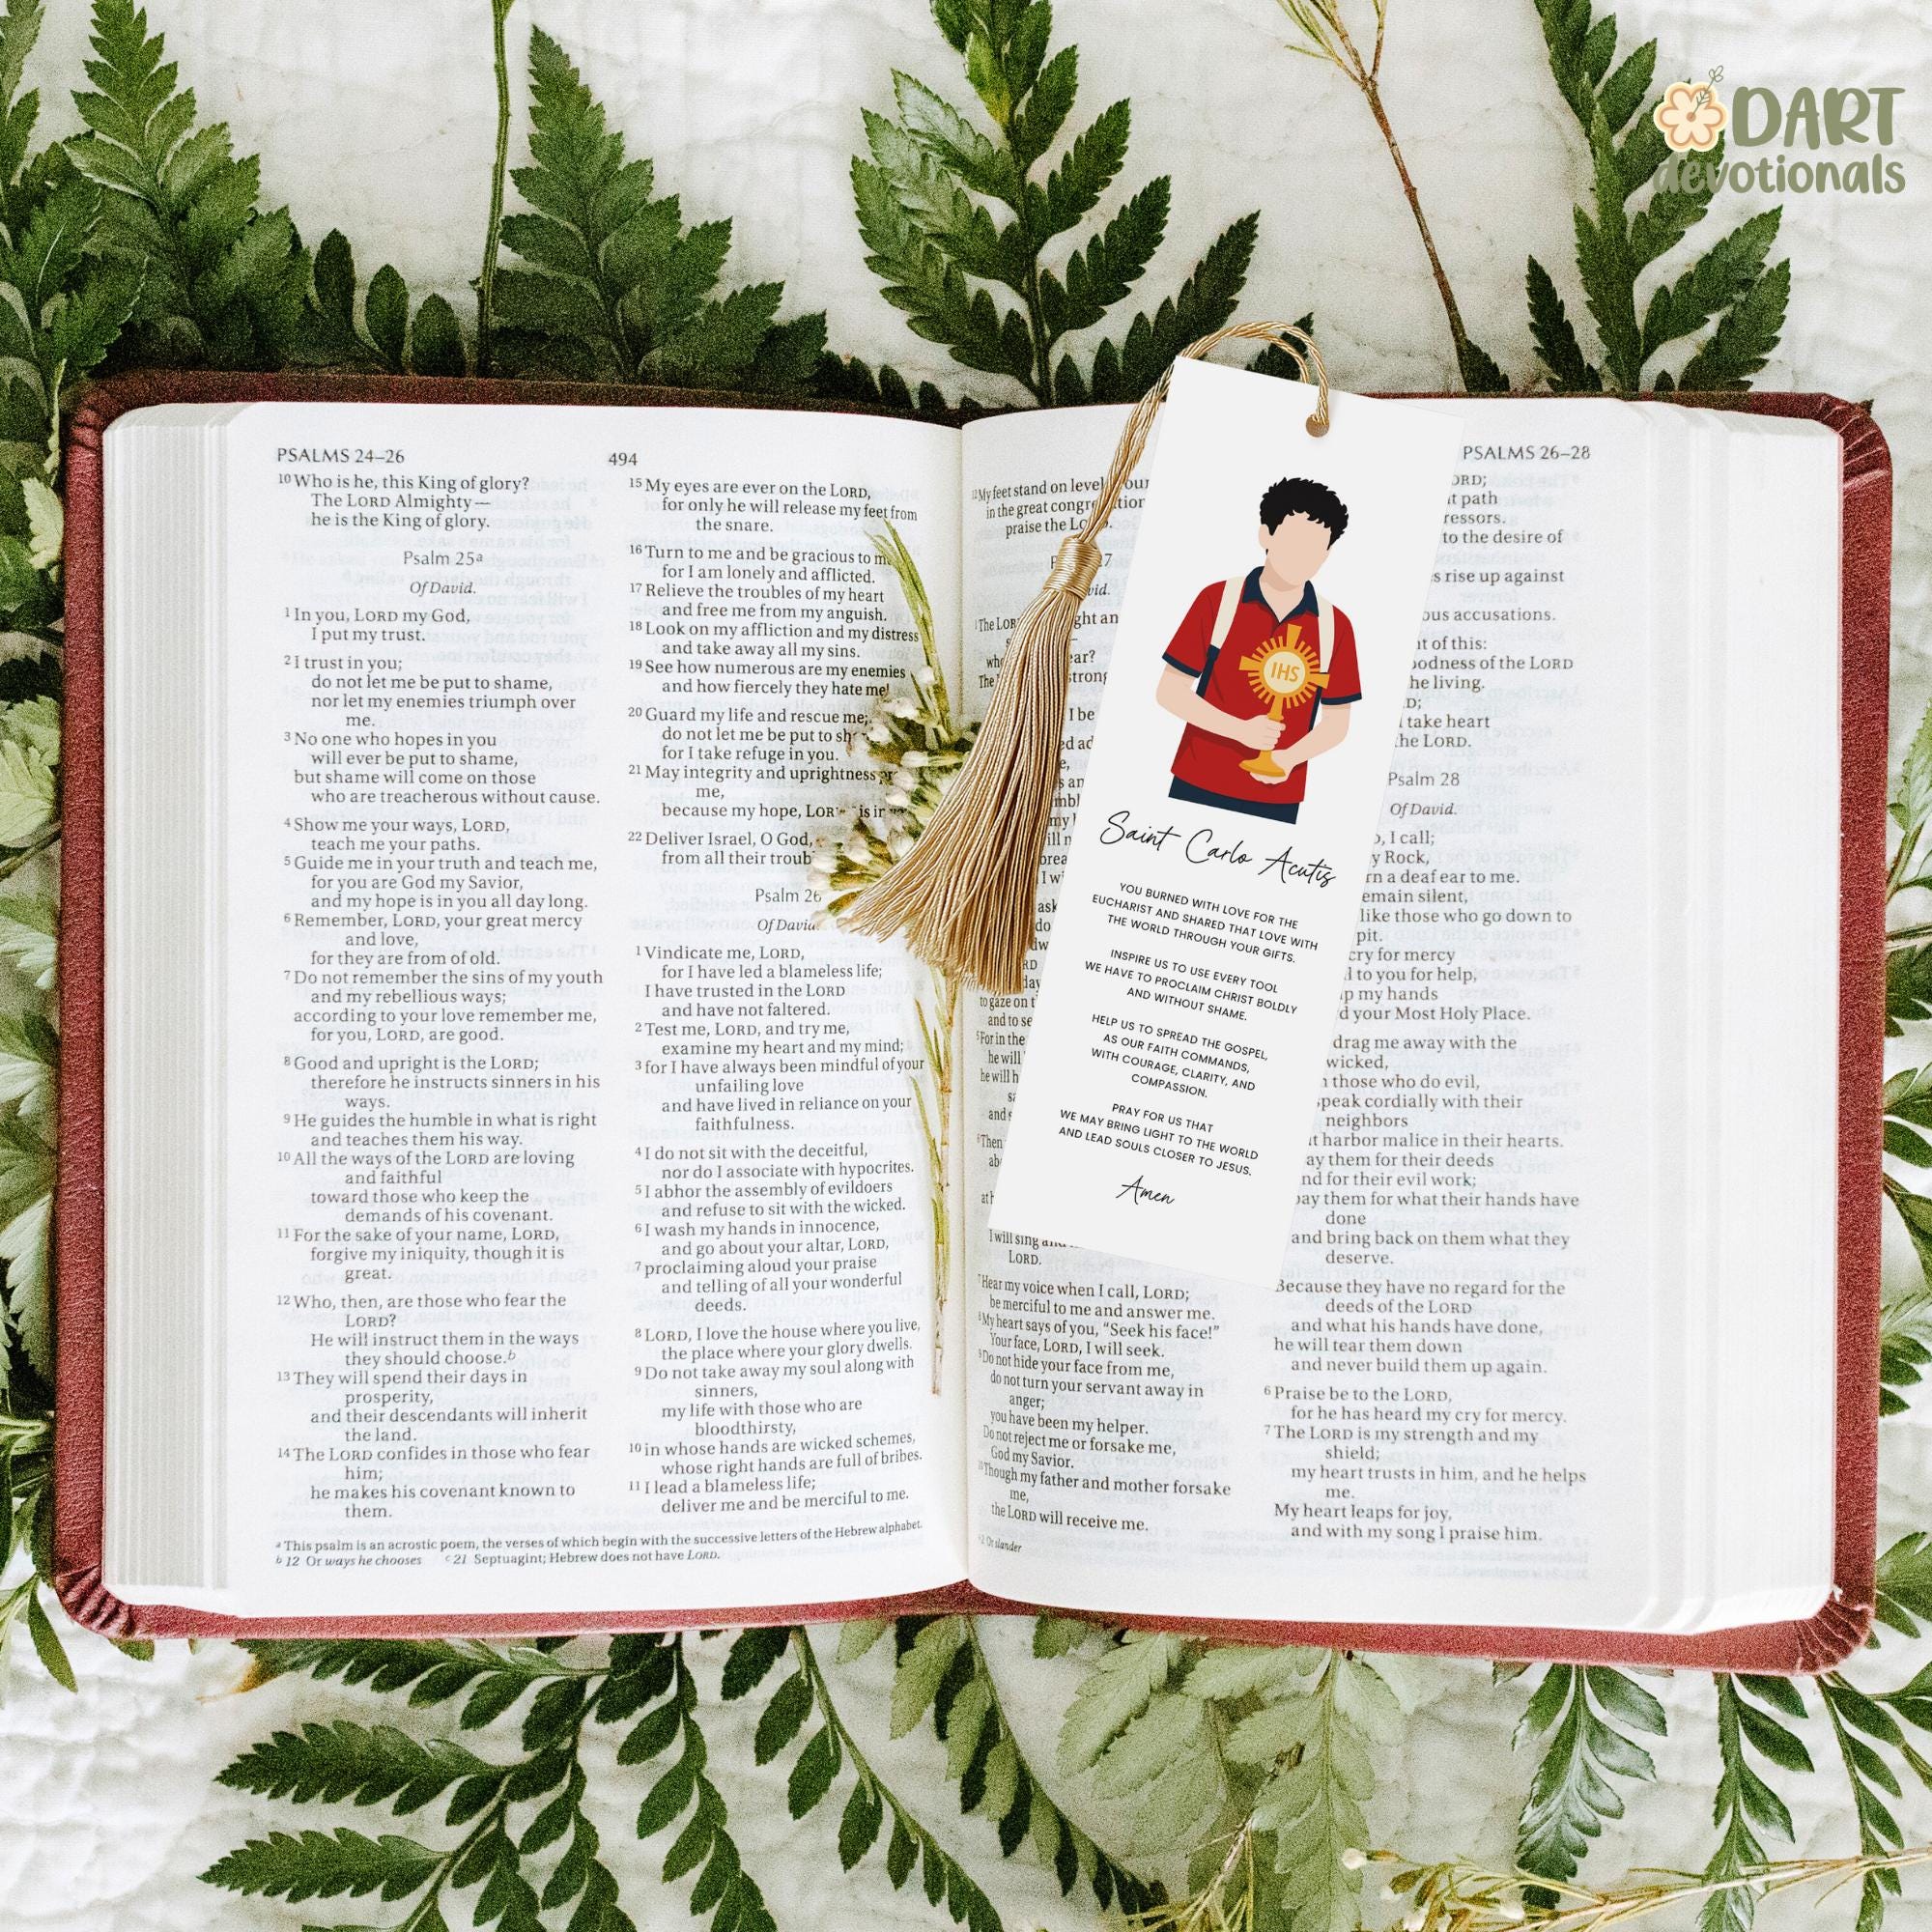 DART
devotionals
PSALMS 24–26
494
10 Who is he, this King of glory?
The LORD Almighty—
he is the King of glory.
Psalm 25a
Of David.
1 In you, LORD my God,
I put my trust.
2 I trust in you;
do not let me be put to shame,
nor let my enemies triumph over
me.
3 No one who hopes in you
will ever be put to shame,
but shame will come on those
who are treacherous without cause.
4 Show me your ways, LORD,
teach me your paths.
5 Guide me in your truth and teach me,
for you are God my Savior,
and my hope is in you all day long.
6 Remember, LORD, your great mercy
and love,
for they are from of old.
7 Do not remember the sins of my youth
and my rebellious ways;
according to your love remember me,
for you, LORD, are good.
8 Good and upright is the LORD;
therefore he instructs sinners in his
ways.
9 He guides the humble in what is right
and teaches them his way.
10 All the ways of the LORD are loving
and faithful
toward those who keep the
demands of his covenant.
11 For the sake of your name, LORD,
forgive my iniquity, though it is
great.
12 Who, then, are those who fear the
LORD?
He will instruct them in the ways
they should choose.b
13 They will spend their days in
prosperity,
and their descendants will inherit
the land.
14 The LORD confides in those who fear
him;
he makes his covenant known to
them.
15 My eyes are ever on the LORD,
for only he will release my feet from
the snare.
16 Turn to me and be gracious to
for I am lonely and afflicted.
17 Relieve the troubles of my heart
and free me from my anguish.
18 Look on my affliction and my distress
and take away all my sins.
19 See how numerous are my enemies
and how fiercely they hate me!
20 Guard my life and rescue me;
do not let me be put to
for I take refuge in you.
21 May integrity and uprightness
me,
because my hope, LORD is in
22 Deliver Israel, O God,
from all their
Psalm 26
Of David
1 Vindicate me, LORD,
for I have led a blameless life;
I have trusted in the LORD
and have not faltered.
2 Test me, LORD, and try me,
examine my heart and my mind;
3 for I have always been mindful of your
unfailing love
and have lived in reliance on your
faithfulness.
4 I do not sit with the deceitful,
nor do I associate with hypocrites.
5 I abhor the assembly of evildoers
and refuse to sit with the wicked.
6 I wash my hands in innocence,
and go about your altar, LORD,
7 proclaiming aloud your praise
and telling of all your wonderful
deeds.
8 LORD, I love the house where you live,
the place where your glory dwells.
9 Do not take away my soul along with
sinners,
my life with those who are
bloodthirsty,
10 in whose hands are wicked schemes,
whose right hands are full of bribes.
11 I lead a blameless life;
deliver me and be merciful to me.
a This psalm is an acrostic poem, the verses of which begin with the successive letters of the Hebrew alphabet.
b 12 Or ways he chooses c 21 Septuagint; Hebrew does not have LORD.
12 My feet stand on level
in the great
praise the
I will sing
LORD.
7 Hear my voice when I call, LORD;
be merciful to me and answer me.
8 My heart says of you, “Seek his face!”
Your face, LORD, I will seek.
9 Do not hide your face from me,
do not turn your servant away in
anger;
you have been my helper.
Do not reject me or forsake me,
God my Savior.
10 Though my father and mother forsake
me,
the LORD will receive me.
Or slander
IHS
Saint Carlo Acutis
YOU BURNED WITH LOVE FOR THE
EUCHARIST AND SHARED THAT LOVE WITH
THE WORLD THROUGH YOUR GIFTS.
INSPIRE US TO USE EVERY TOOL
WE HAVE TO PROCLAIM CHRIST BOLDLY
AND WITHOUT SHAME.
HELP US TO SPREAD THE GOSPEL,
AS OUR FAITH COMMANDS,
WITH COURAGE, CLARITY, AND
COMPASSION.
PRAY FOR US THAT
WE MAY BRING LIGHT TO THE WORLD
AND LEAD SOULS CLOSER TO JESUS.
Amen
PSALMS 26–28
path
to the desire of
rise up against
accusations.
of this:
of the LORD
living.
take heart
the LORD.
Psalm 28
Of David.
I call;
Rock,
a deaf ear to me.
remain silent,
like those who go down to
pit.
cry for mercy
to you for help,
my hands
your Most Holy Place.
drag me away with the
wicked,
those who do evil,
speak cordially with their
neighbors
harbor malice in their hearts.
them for their deeds
and for their evil work;
them for what their hands have
done
and bring back on them what they
deserve.
Because they have no regard for the
deeds of the LORD
and what his hands have done,
he will tear them down
and never build them up again.
6 Praise be to the LORD,
for he has heard my cry for mercy.
7 The LORD is my strength and my
shield;
my heart trusts in him, and he helps
me.
My heart leaps for joy,
and with my song I praise him.